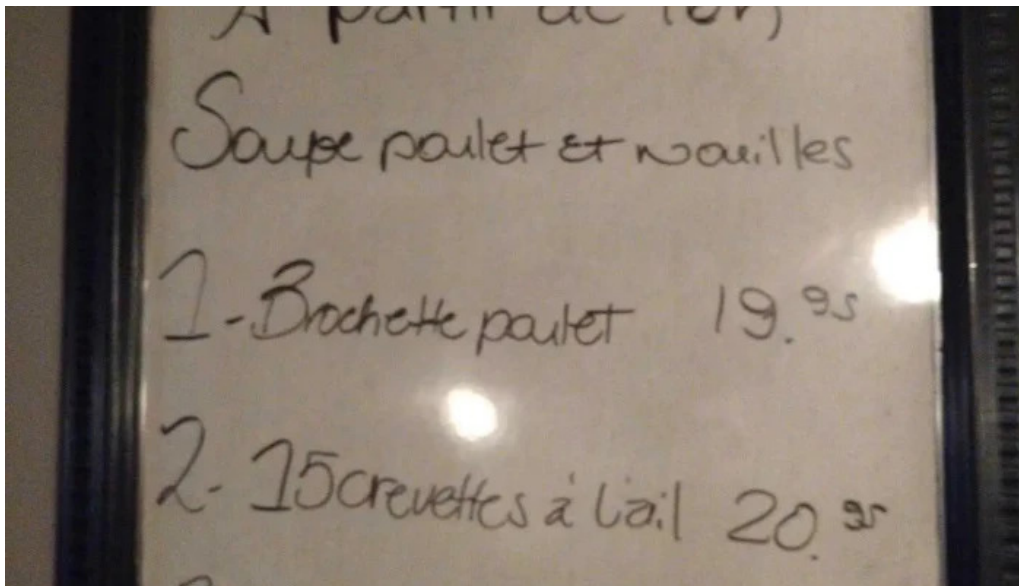 À partir de
Soupe poulet et nouilles
1-Brochette poulet 19.95
2-15 crevettes à l'ail 20.95